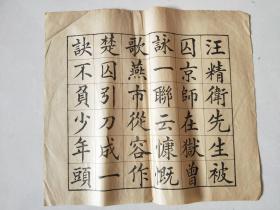 汪精衛先生被
囚京師在獄曾
詠一聯云慷慨
歌燕市從容作
楚囚引刀成一
訣不負少年頭